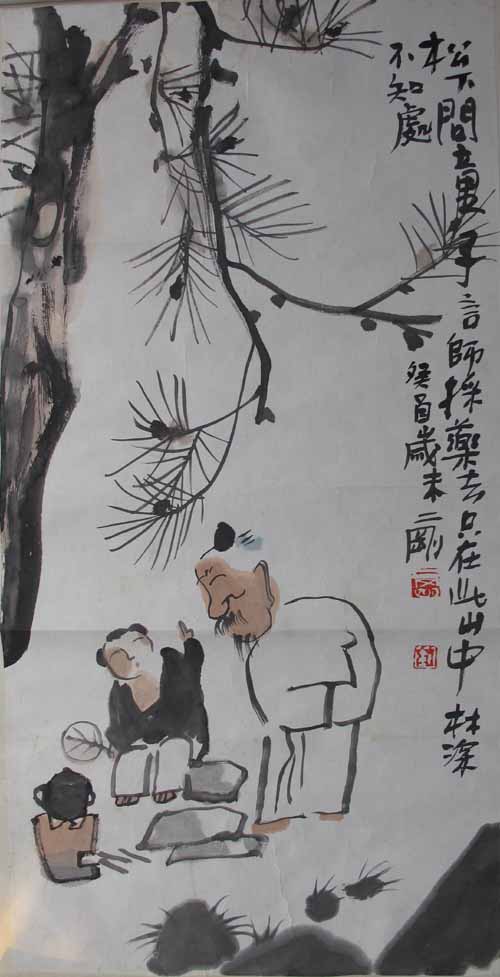 松下問童子言師採藥去只在此山中林深
不知處
癸酉歲末二剛